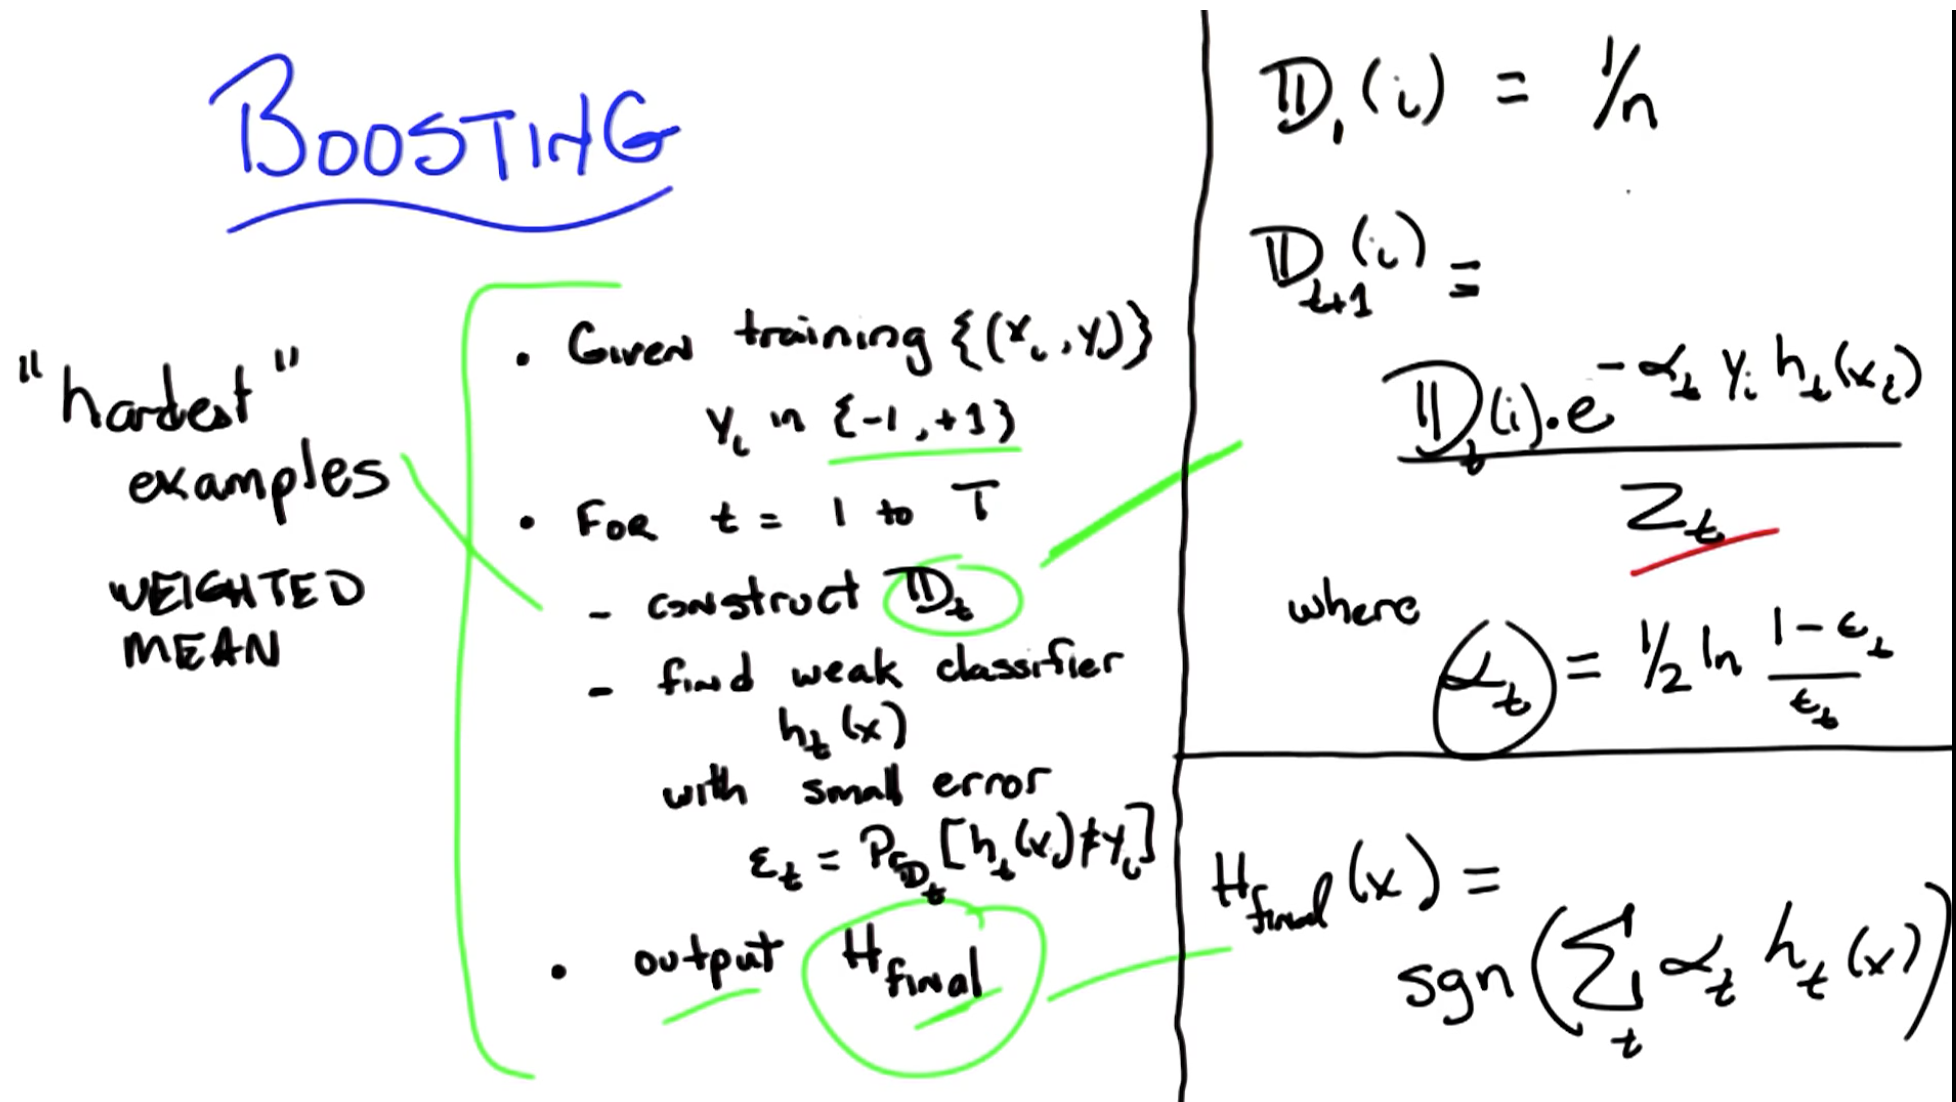 BOOSTING
"hardest"
examples
WEIGHTED
MEAN
• Given training {(xᵢ, yᵢ)}
yᵢ in {-1, +1}
• For t = 1 to T
- construct 𝔻ₜ
- find weak classifier
hₜ(x)
with small error
εₜ = P_𝔻ₜ [hₜ(xᵢ) ≠ yᵢ]
• output H_final
𝔻₁(i) = 1/n
𝔻ₜ₊₁(i) =
𝔻ₜ(i) · e^(-αₜ yᵢ hₜ(xᵢ))
Zₜ
where
αₜ = 1/2 ln (1 - εₜ)/εₜ
H_final(x) =
sgn(∑ₜ αₜ hₜ(x))